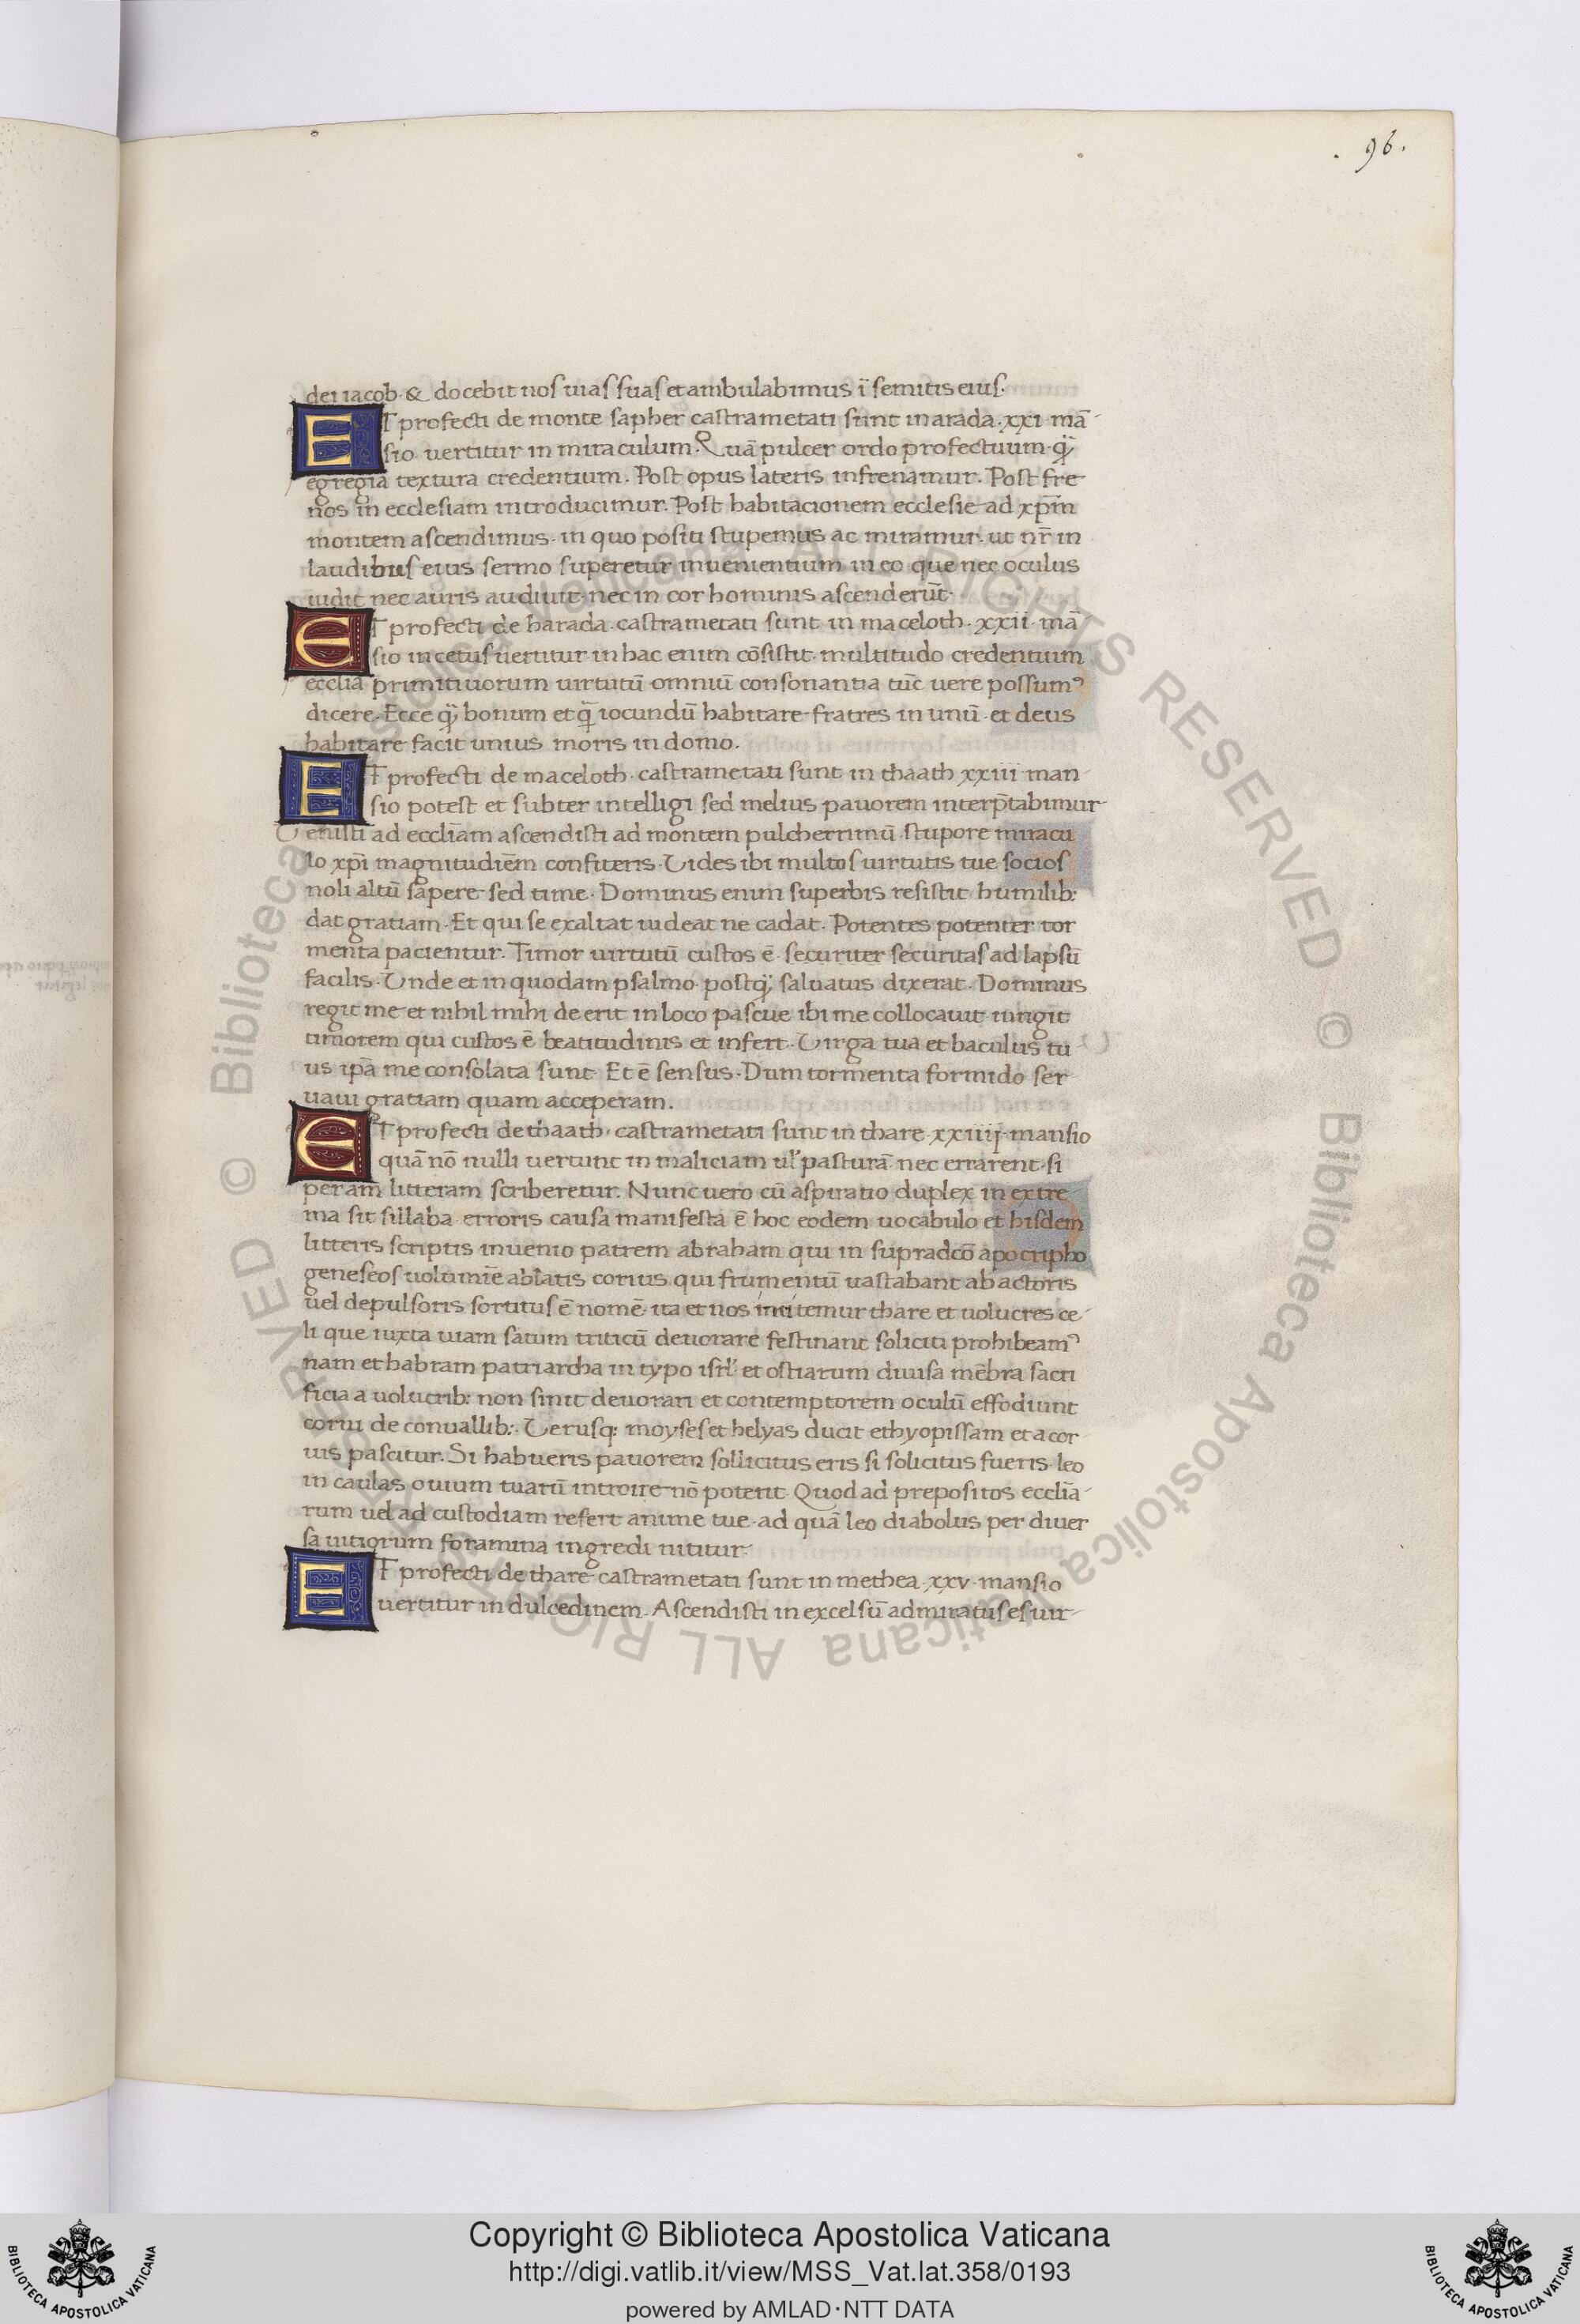 . 96.
dei iacob. & docebit nos uias suas et ambulabimus ī semitis eius.
ET profecti de monte sapher castrametati sunt in arada. xxi. mā
sio uertitur in miraculum. Quā pulcer ordo profectuum. q̄
egregia textura credentium. Post opus lateris infrenamur. Post fre
nos in ecclesiam introducimur. Post habitacionem ecclesie ad xp̄m
montem ascendimus. in quo positi stupemus ac miramur. ut nr̄ in
laudibus eius sermo superetur inuenientium in eo que nec oculus
uidit nec auris audiuit. nec in cor hominis ascenderūt.
ET profecti de harada. castrametati sunt in maceloth. xxii. mā
sio in cetus uertitur in hac enim cōsistit multitudo credentium
ecclīa primitiuorum uirtutū omniū consonantia tūc uere possumꝰ
dicere. Ecce q̄ bonum et q̄ iocundū habitare fratres in unū. et deus
habitare facit unius moris in domo.
ET profecti de maceloth. castrametati sunt in thaath xxiii man
sio potest et subter intelligi sed melius pauorem interp̄tabimur
Uenisti ad ecclīam ascendisti ad montem pulcherrimū. stupore miracu
lo xp̄i magnitudiēm confiteris. Uides ibi multos uirtutis tue socios
noli altū sapere sed time. Dominus enim superbis resistit humilib:
dat gratiam. Et qui se exaltat uideat ne cadat. Potentes potenter tor
menta pacientur. Timor uirtutū custos ē. securiter securitas ad lapsū
facilis. Unde et in quodam psalmo. postq̄ saluatus dixerat. Dominus
regit me et nihil mihi de erit in loco pascue ibi me collocauit iungit
timorem qui custos ē beatitudinis et infert. Uirga tua et baculus tu
us ipā me consolata sunt. Et ē sensus. Dum tormenta formido ser
uaui gratiam quam acceperam.
ET profecti de thaath. castrametati sunt in thare. xxiiij. mansio
quā nō nulli uertunt in maliciam ul' pasturā. nec errarent. si
per am litteram scriberetur. Nunc uero cū aspiratio duplex in extre
ma sit sillaba. erroris causa manifesta ē hoc eodem uocabulo et hisdem
litteris scriptis inuenio patrem abraham qui in supradcō apocripho
geneseos uolumīe ablatis coruis qui frumentū uastabant ab actoris
uel depulsoris sortitus ē nomē. ita et nos imitemur thare et uolucres ce
li que iuxta uiam satum triticū deuorare festinant soliciti prohibeamꝰ
nam et habram patriarcha in typo isrl' et ostiarum diuisa mēbra sacri
ficia a uolucrib: non sinit deuorari et contemptorem oculū effodiunt
corui de conuallib:. Uerusq: moyses et helyas ducit ethyopissam et a cor
uis pascitur. Si habueris pauorem sollicitus eris si solicitus fueris. leo
in caulas ouium tuarū introire nō poterit. Quod ad prepositos ecclīa
rum uel ad custodiam refert anime tue. ad quā leo diabolus per diuer
sa uitiorum foramina ingredi nititur.
ET profecti de thare castrametati sunt in methea. xxv. mansio
uertitur in dulcedinem. Ascendisti in excelsū admiratus es uir
© Biblioteca Apostolica Vaticana ALL RIGHTS RESERVED
© Biblioteca Apostolica Vaticana ALL RIGHTS RESERVED
Copyright © Biblioteca Apostolica Vaticana
http://digi.vatlib.it/view/MSS_Vat.lat.358/0193
powered by AMLAD·NTT DATA
BIBLIOTECA APOSTOLICA VATICANA
BIBLIOTECA APOSTOLICA VATICANA